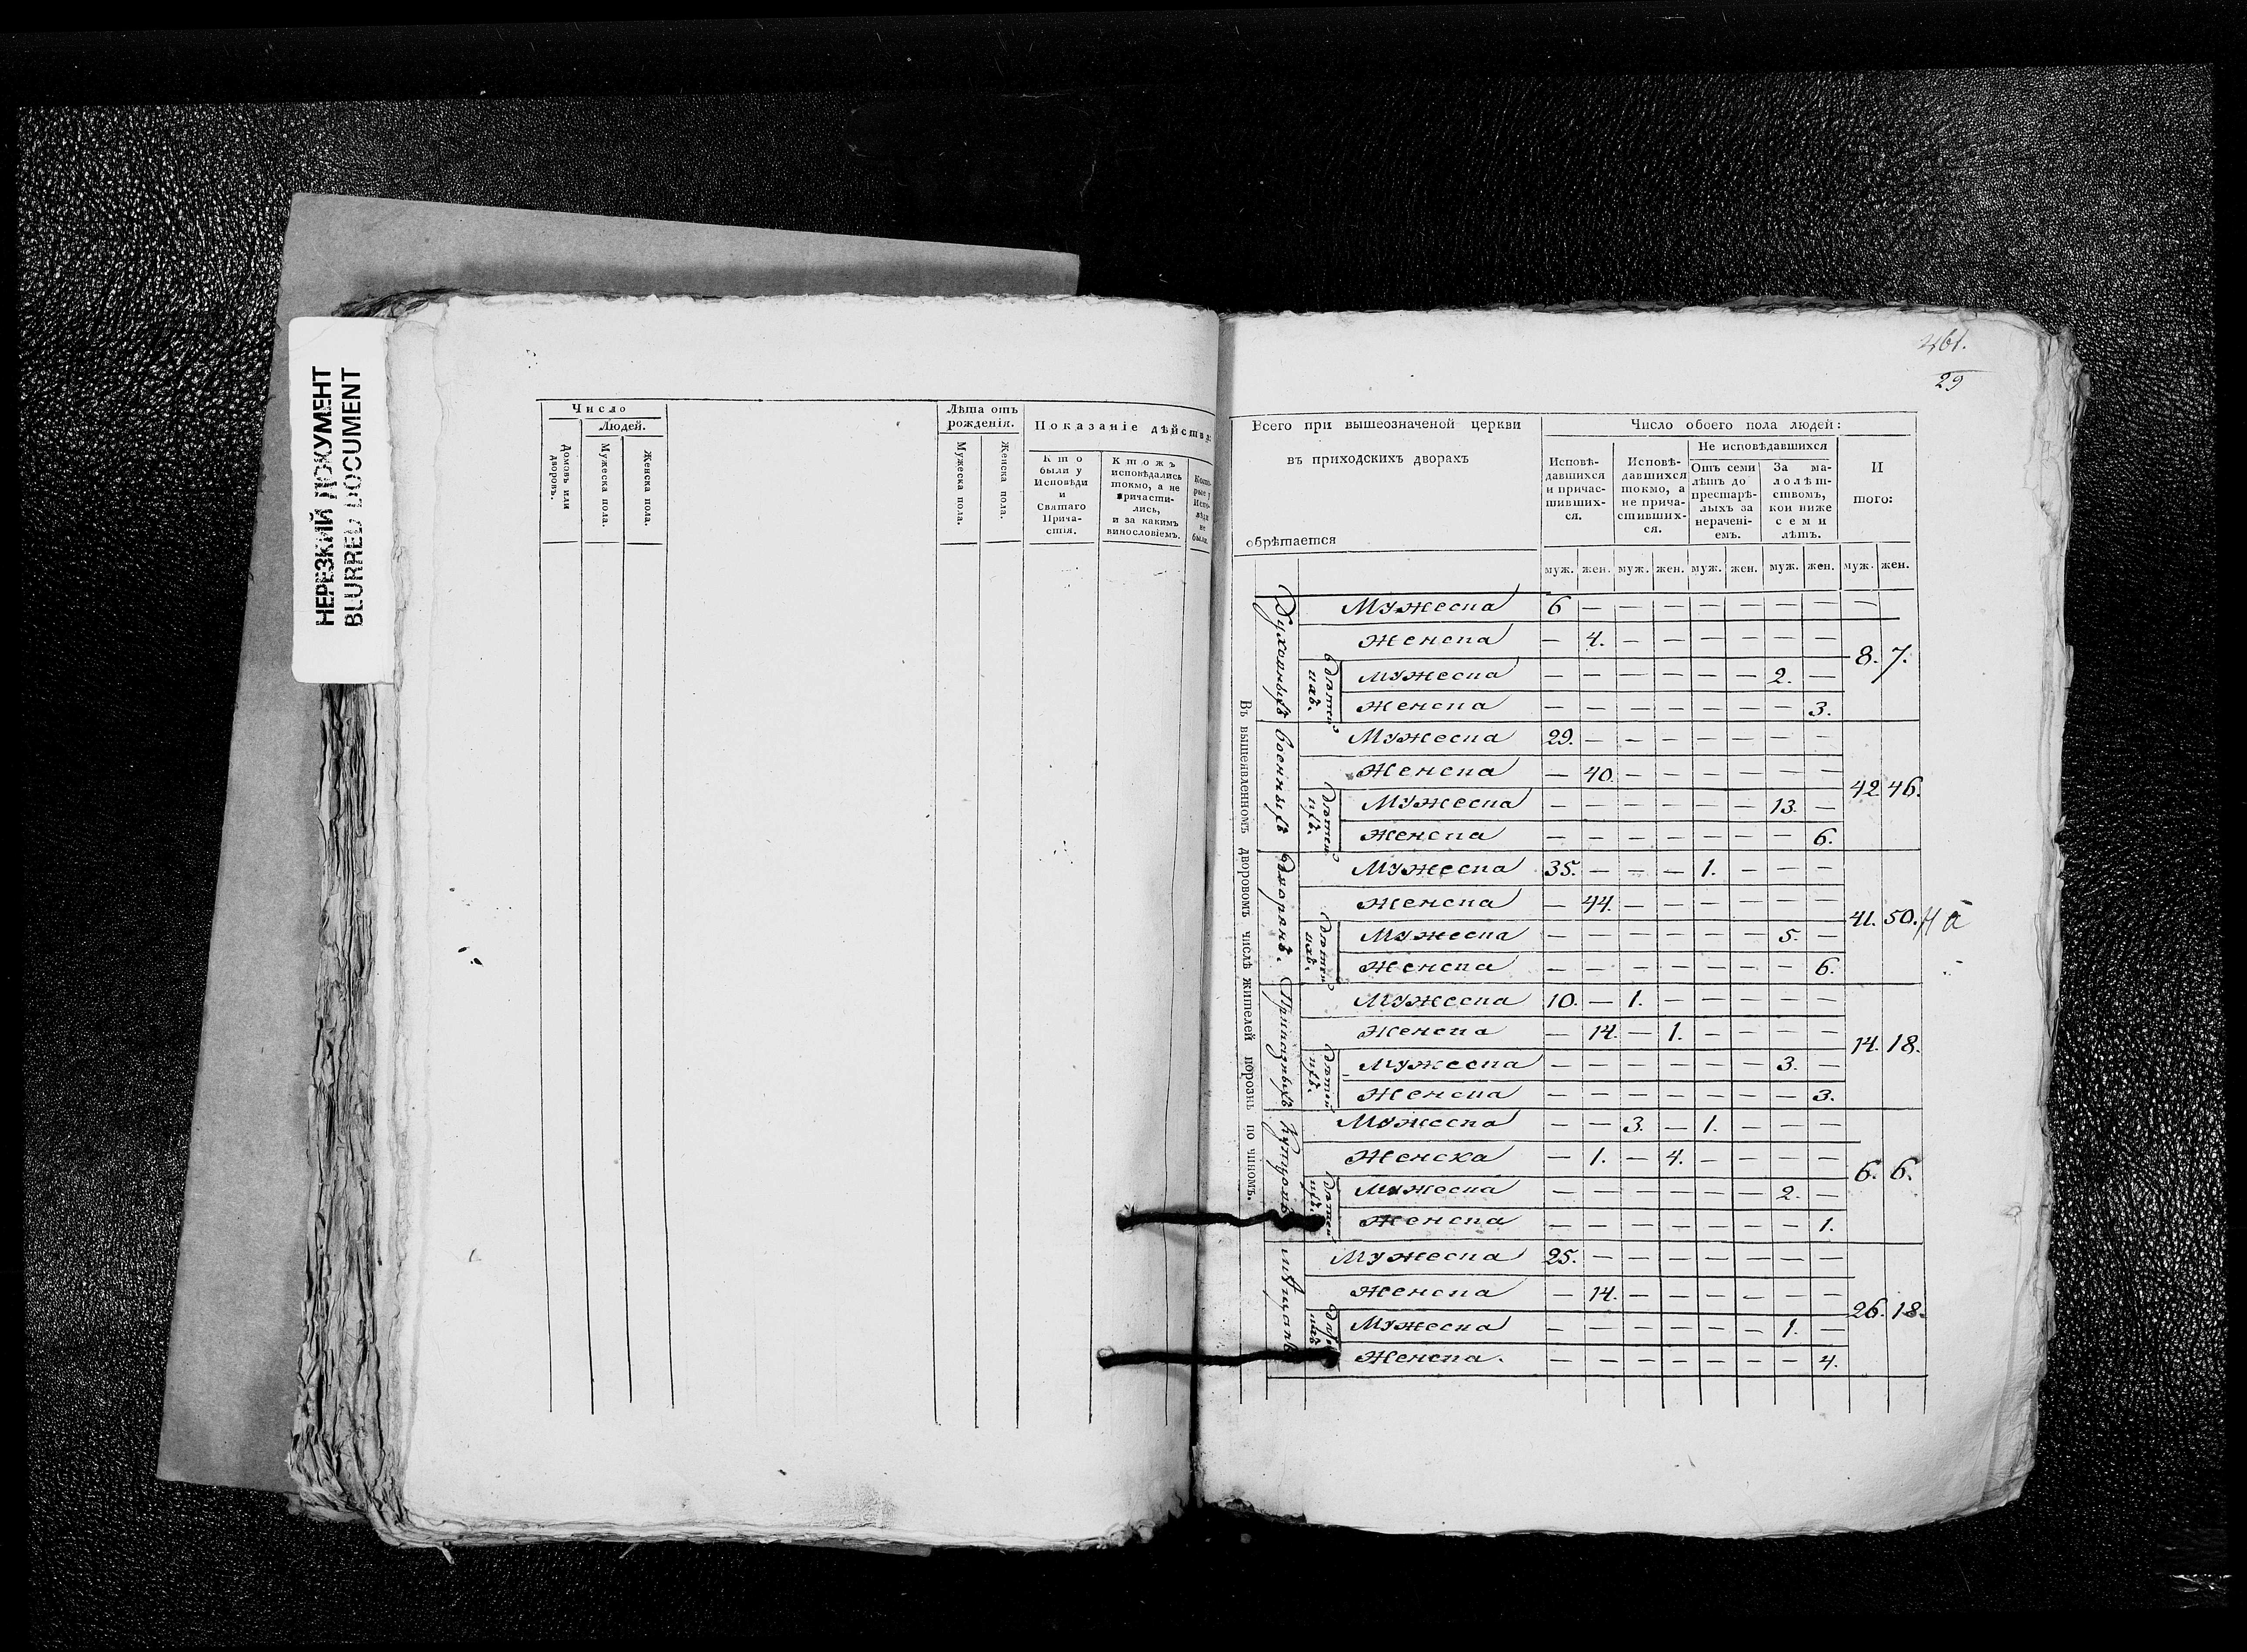 НЕРЕЗКИЙ ДОКУМЕНТ
BLURRED DOCUMENT
Число
Домовъ или дворовъ.
Людей.
Мужеска пола.
Женска пола.
Лѣта отъ рожденія.
Мужеска пола.
Женска пола.
Показаніе дѣйства:
Кто были у Исповѣди и Святаго Причастія.
Ктожъ исповѣдались токмо, а не причастились, и за какимъ винословіемъ.
Которые у Исповѣди не были.
461.
29
Всего при вышеозначеной церкви
въ приходскихъ дворахъ
обрѣтается
Число обоего пола людей:
Исповѣдавшихся и причастившихся.
Исповѣдавшихся токмо, а не причастившихся.
Не исповѣдавшихся
Отъ семи лѣтъ до престарѣлыхъ за нераченіемъ.
За малолѣтствомъ, кои ниже семи лѣтъ.
И того:
муж. жен. муж. жен. муж. жен. муж. жен. муж. жен.
Въ вышеявленномъ дворовомъ числѣ жителей порознь по чиномъ.
Духовныхъ
Мужеска 6 — — — — — — — —
Женска — 4. — — — — — —
дѣтей ихъ.
Мужеска — — — — — — 2. —
Женска — — — — — — — 3.
8. 7.
Военныхъ
Мужеска 29. — — — — — — —
Женска — 40. — — — — — —
дѣтей ихъ.
Мужеска — — — — — — 13. —
Женска — — — — — — — 6.
42 46.
Дворянъ.
Мужеска 35. — — — 1. — — —
Женска — 44. — — — — — —
дѣтей ихъ.
Мужеска — — — — — — 5. —
Женска — — — — — — — 6.
41. 50.
Приказныхъ
Мужеска 10. — 1. — — — — —
Женска — 14. — 1. — — — —
дѣтей ихъ.
Мужеска — — — — — — 3. —
Женска — — — — — — — 3.
14. 18.
Купцовъ
Мужеска — — 3. — 1. — — —
Женска — 1. — 4. — — — —
дѣтей ихъ.
Мужеска — — — — — — 2. —
Женска — — — — — — — 1.
6. 6.
Мужеска 25. — — — — — — —
Женска — 14. — — — — — —
Мужеска — — — — — — 1. —
Женска. — — — — — — — 4.
26. 18.